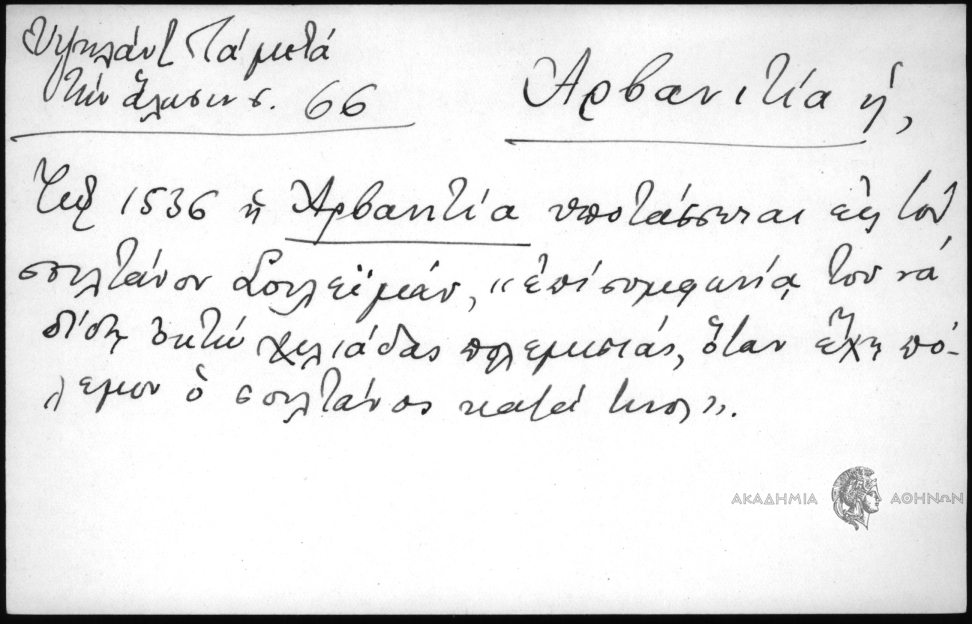 Ὑψηλάντ Τά μετά
τὴν ἅλωσιν σ. 66
Ἀρβανιτία ἡ,
Τῷ 1536 ἡ Ἀρβανιτία ὑποτάσσεται εἰς τὸν
σουλτάνον Σουλεϊμάν, «ἐπί συμφωνίᾳ τοῦ νά
δίδῃ ὀκτώ χιλιάδας πολεμιστάς, ὅταν ἔχῃ πό-
λεμον ὁ σουλτάνος κατά τινος».
ΑΚΑΔΗΜΙΑ ΑΘΗΝΩΝ